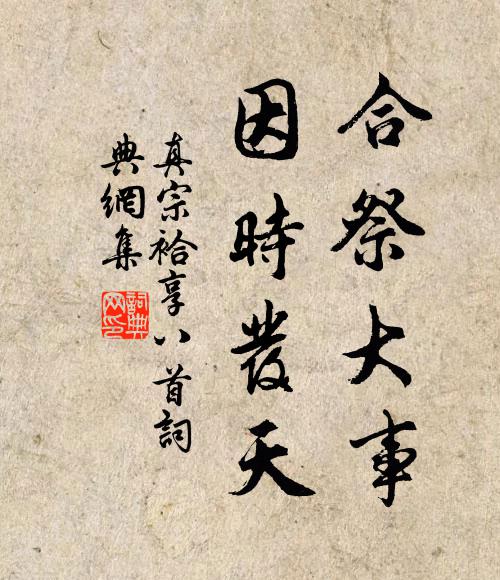 合祭大事
因時發天
真宗祫享八首詞
典網集
詞典網印